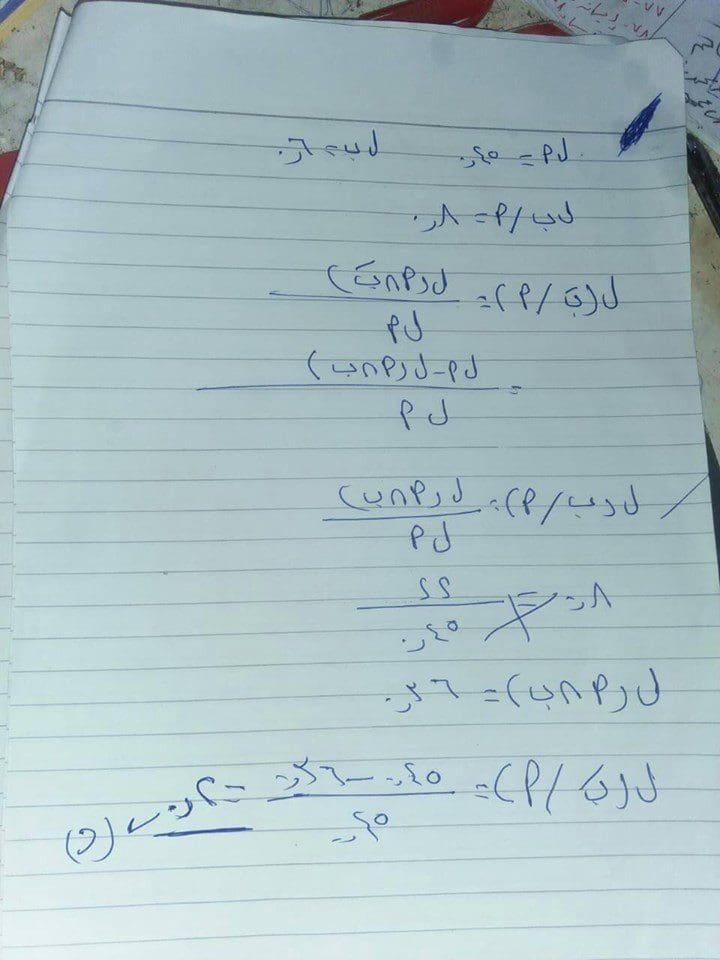 ل أ = ٠,٤٥ ل ب = ٠,٦
ل ب / أ = ٠,٨
ل (بَ / أ) = ل (أ ∩ بَ)
ل أ
= ل أ - ل (أ ∩ ب)
ل أ
ل (ب / أ) = ل (أ ∩ ب)
ل أ
٠,٨ = ؟؟
٠,٤٥
ل (أ ∩ ب) = ٠,٣٦
ل (بَ / أ) = ٠,٤٥ - ٠,٣٦ = ٠,٢ ✓
٠,٤٥